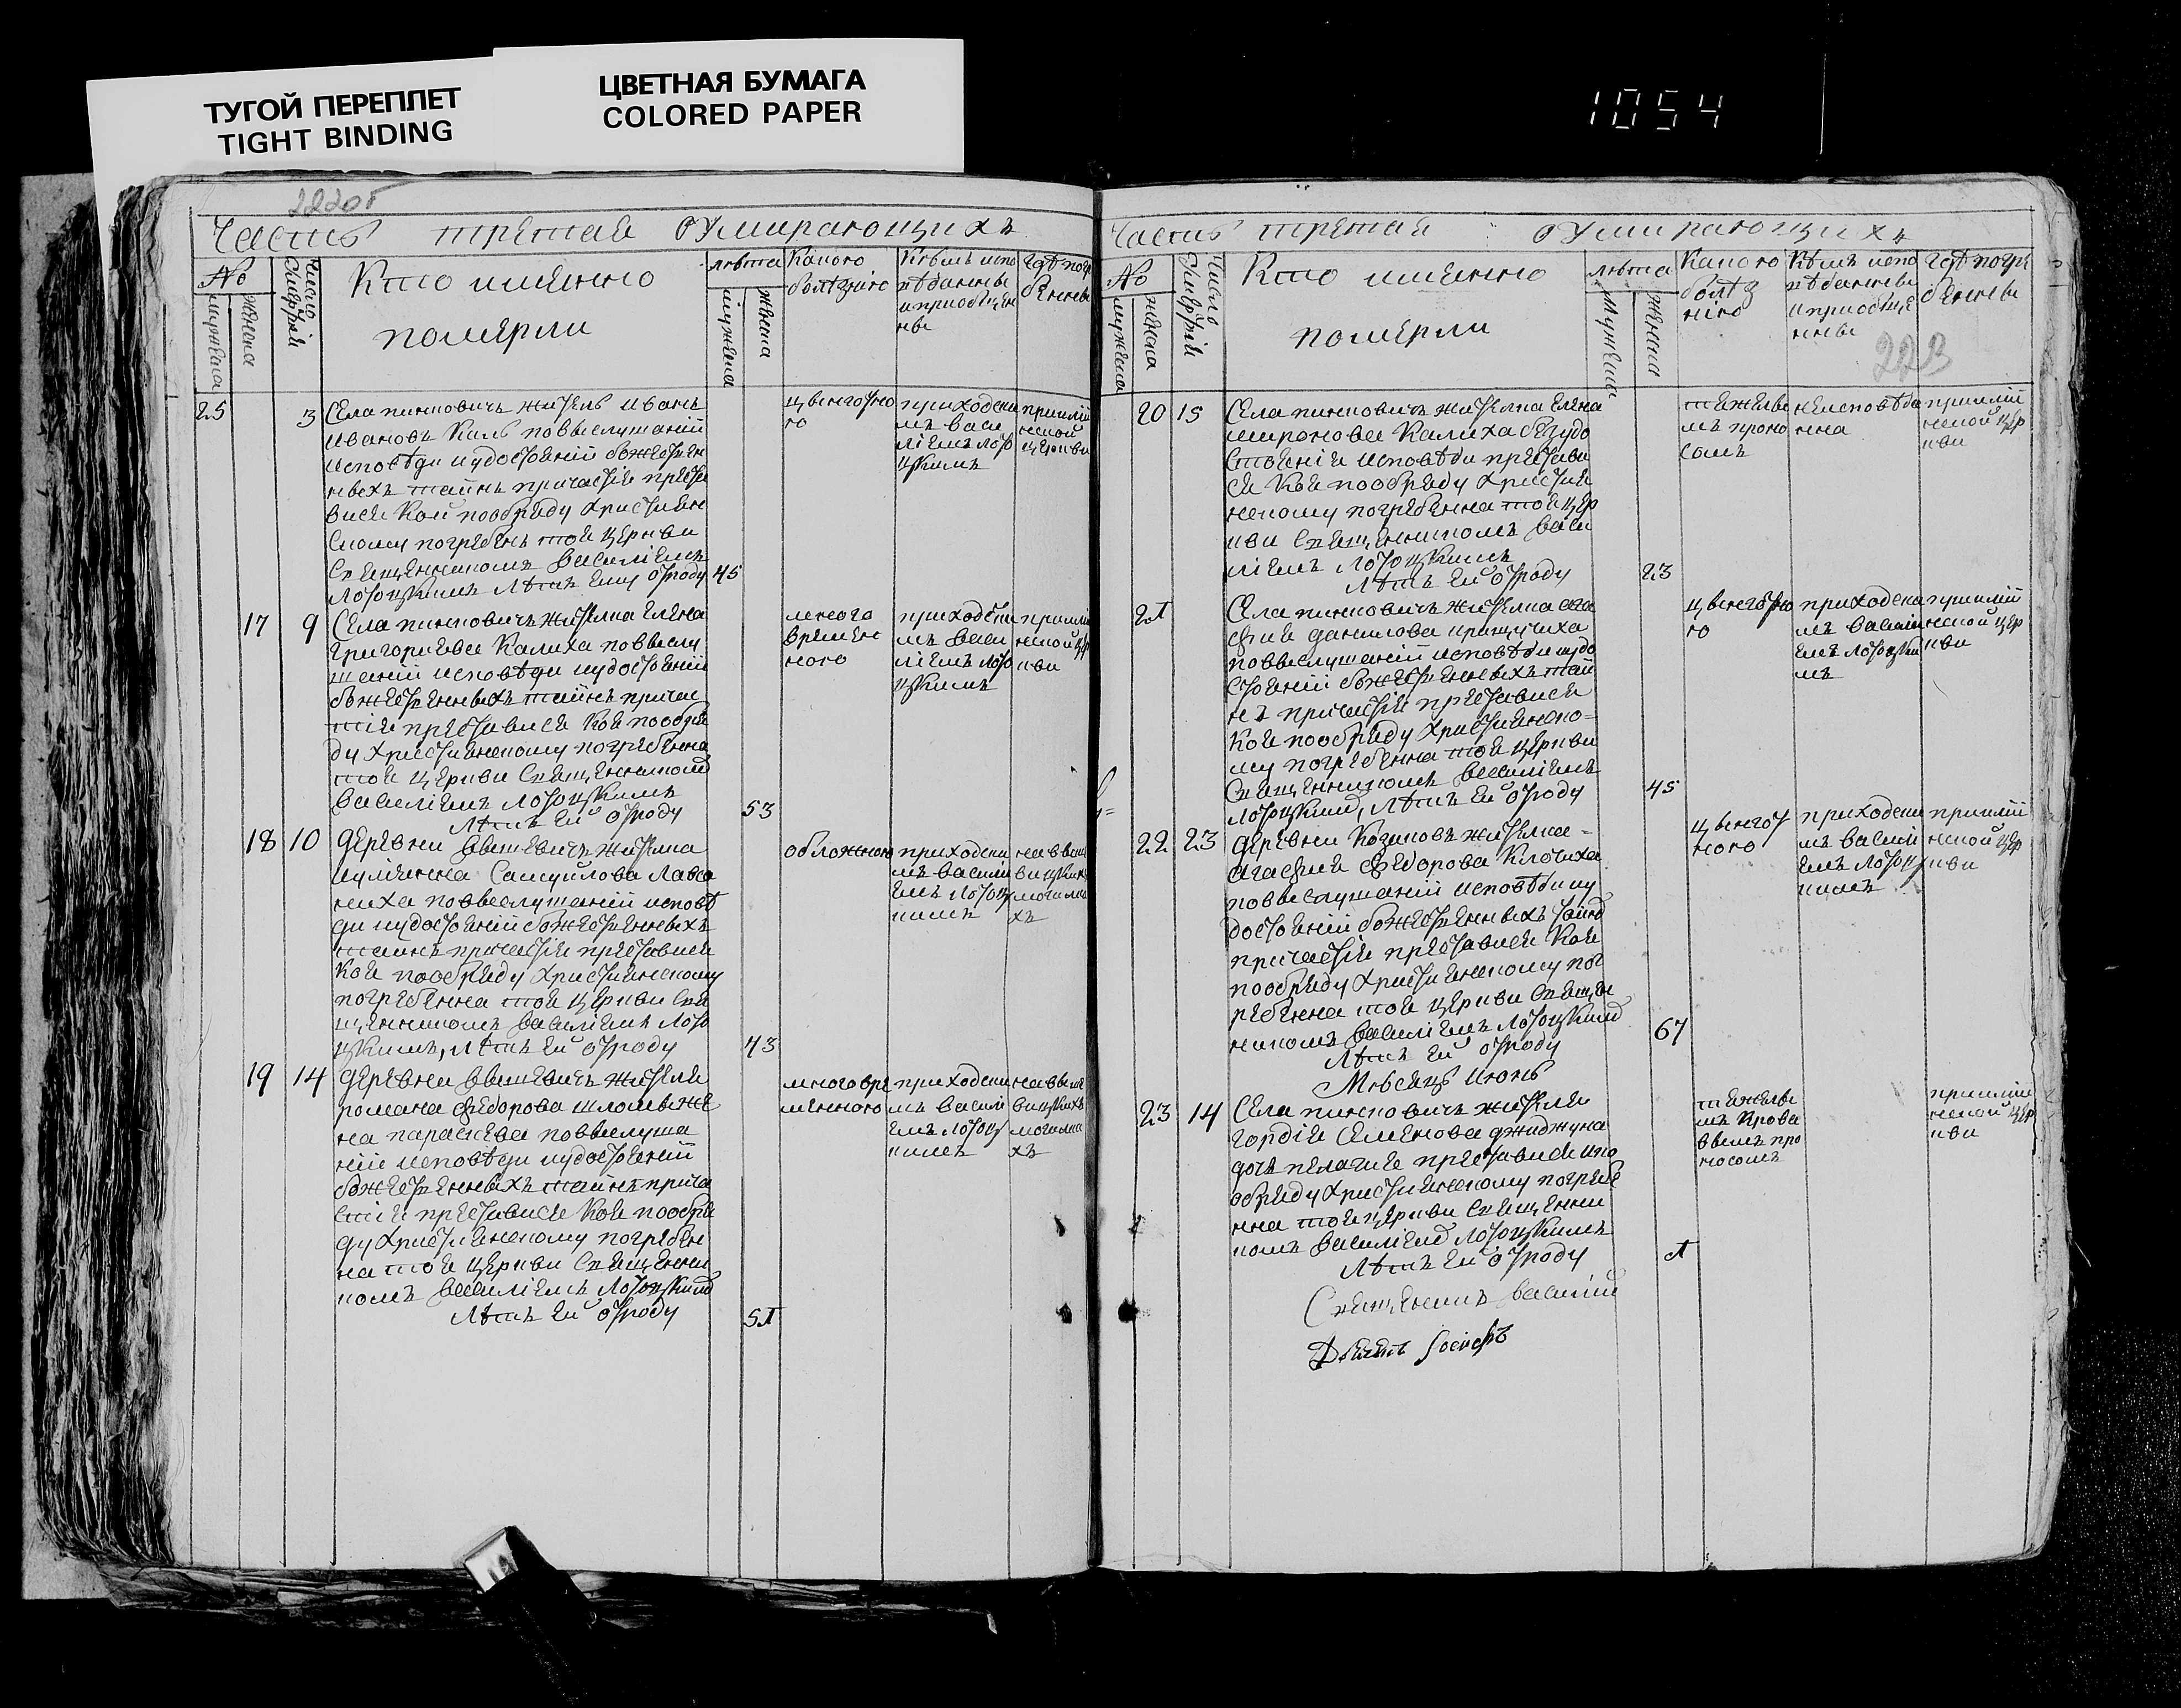 ТУГОЙ ПЕРЕПЛЕТ
TIGHT BINDING
ЦВЕТНАЯ БУМАГА
COLORED PAPER
1054
222об
Часть третая оумирающихъ
№
мужеска
женска
Число
Кто именно
померли
лѣта
мужеска
женска
Какою
болѣзнію
Кѣмъ испо
вѣданны
и приобщен
ны
Гдѣ погр
бенны
25
3
Села пинковичъ житель иванъ
ивановъ Каль повыслушаніи
исповѣди иудостоеніи божествен
ныхъ таинъ причастія преста
вися кой пообряду христиан
скому погребенъ тоя церкви
Священникомъ василіемъ
Лотоцкимъ Лѣтъ ему отроду
45
приходски
мъ васи
ліемъ лото
цкимъ
приплій
нской
церкви
17
9
Села пинковичъ жителка елена
григориева Калиха повыслу
шаніи исповѣди иудостоеніи
божественныхъ таинъ причас
тія преставися коя пообря
ду христианскому погребенна
тоя церкви Священникомъ
василіемъ лотоцкимъ
Лѣтъ ей отроду
53
много
времен
ною
приходски
мъ васи
ліемъ лото
цкимъ
18
10
деревни вышевичъ жителка
иулиянна Самуйлова
повыслушаніи исповѣ
ди иудостоеніи божественныхъ
таинъ причастія преставися
коя пообряду христианскому
погребенна тоя церкви Свя
щенникомъ василіемъ лото
цкимъ, лѣтъ ей отроду
43
обложною
приходски
мъ васили
емъ лотоц
кимъ
на выше
вицкихъ
могилка
хъ
19
14
деревни вышевичъ жителя
романа федорова жe
на параскева повыслуша
ніи исповѣди иудостоеніи
божественныхъ таинъ прича
стія преставися коя пообря
ду христианскому погребен
на тоя церкви Священни
комъ василіемъ лотоцкимъ
Лѣтъ ей отроду
51
многовре
менною
приходски
мъ василі
емъ лотоц
кимъ
на выше
вицкихъ
могилка
хъ
Часть третая оумирающихъ
№
мужеска
женска
Число
Кто именно
померли
лѣта
мужеска
женска
Какою
болѣз
нію
Кѣмъ испо
вѣданны
и приобще
нны
Гдѣ погре
бенны
223
20
15
Села пинковичъ жителка елена
миронова Калиха безудо
стоенія исповѣди престави
ся коя пообряду христия
нскому погребенна тоя цер
кви Священникомъ васи
ліемъ лотоцкимъ
Лѣтъ ей отроду
23
тяжелы
мъ проно
сомъ
неисповѣда
нна
21
Села пинковичъ жителка ага
фия данилова
повыслушаніи исповѣди иудо
стоеніи божественныхъ таи
нъ причастія преставися
коя пообряду христианско-
му погребенна тоя церкви
Священникомъ василіемъ
лотоцкимъ, лѣтъ ей отроду
45
приходски
мъ васили
емъ лотоцки
мъ
22
23
деревни Козиковъ жителка-
агафия федорова Клочиха
повыслушаніи исповѣди иу
достоеніи божественныхъ таинъ
причастія преставися коя
пообряду христианскому пог
ребенна тоя церкви Священ
никомъ василіемъ лотоцкимъ
Лѣтъ ей отроду
67
приходски
мъ васили
емъ лотоц
кимъ
Мѣсяцъ июнь
23
14
Села пинковичъ жителя
гордія семенова джиджука
дочь пелагия преставися ипо
обряду христианскому погребе
нна тоя церкви Священни
комъ василіемъ лотоцкимъ
Лѣтъ ей отроду
1
тяжелы
мъ крова
вымъ про
носомъ
Священникъ василий